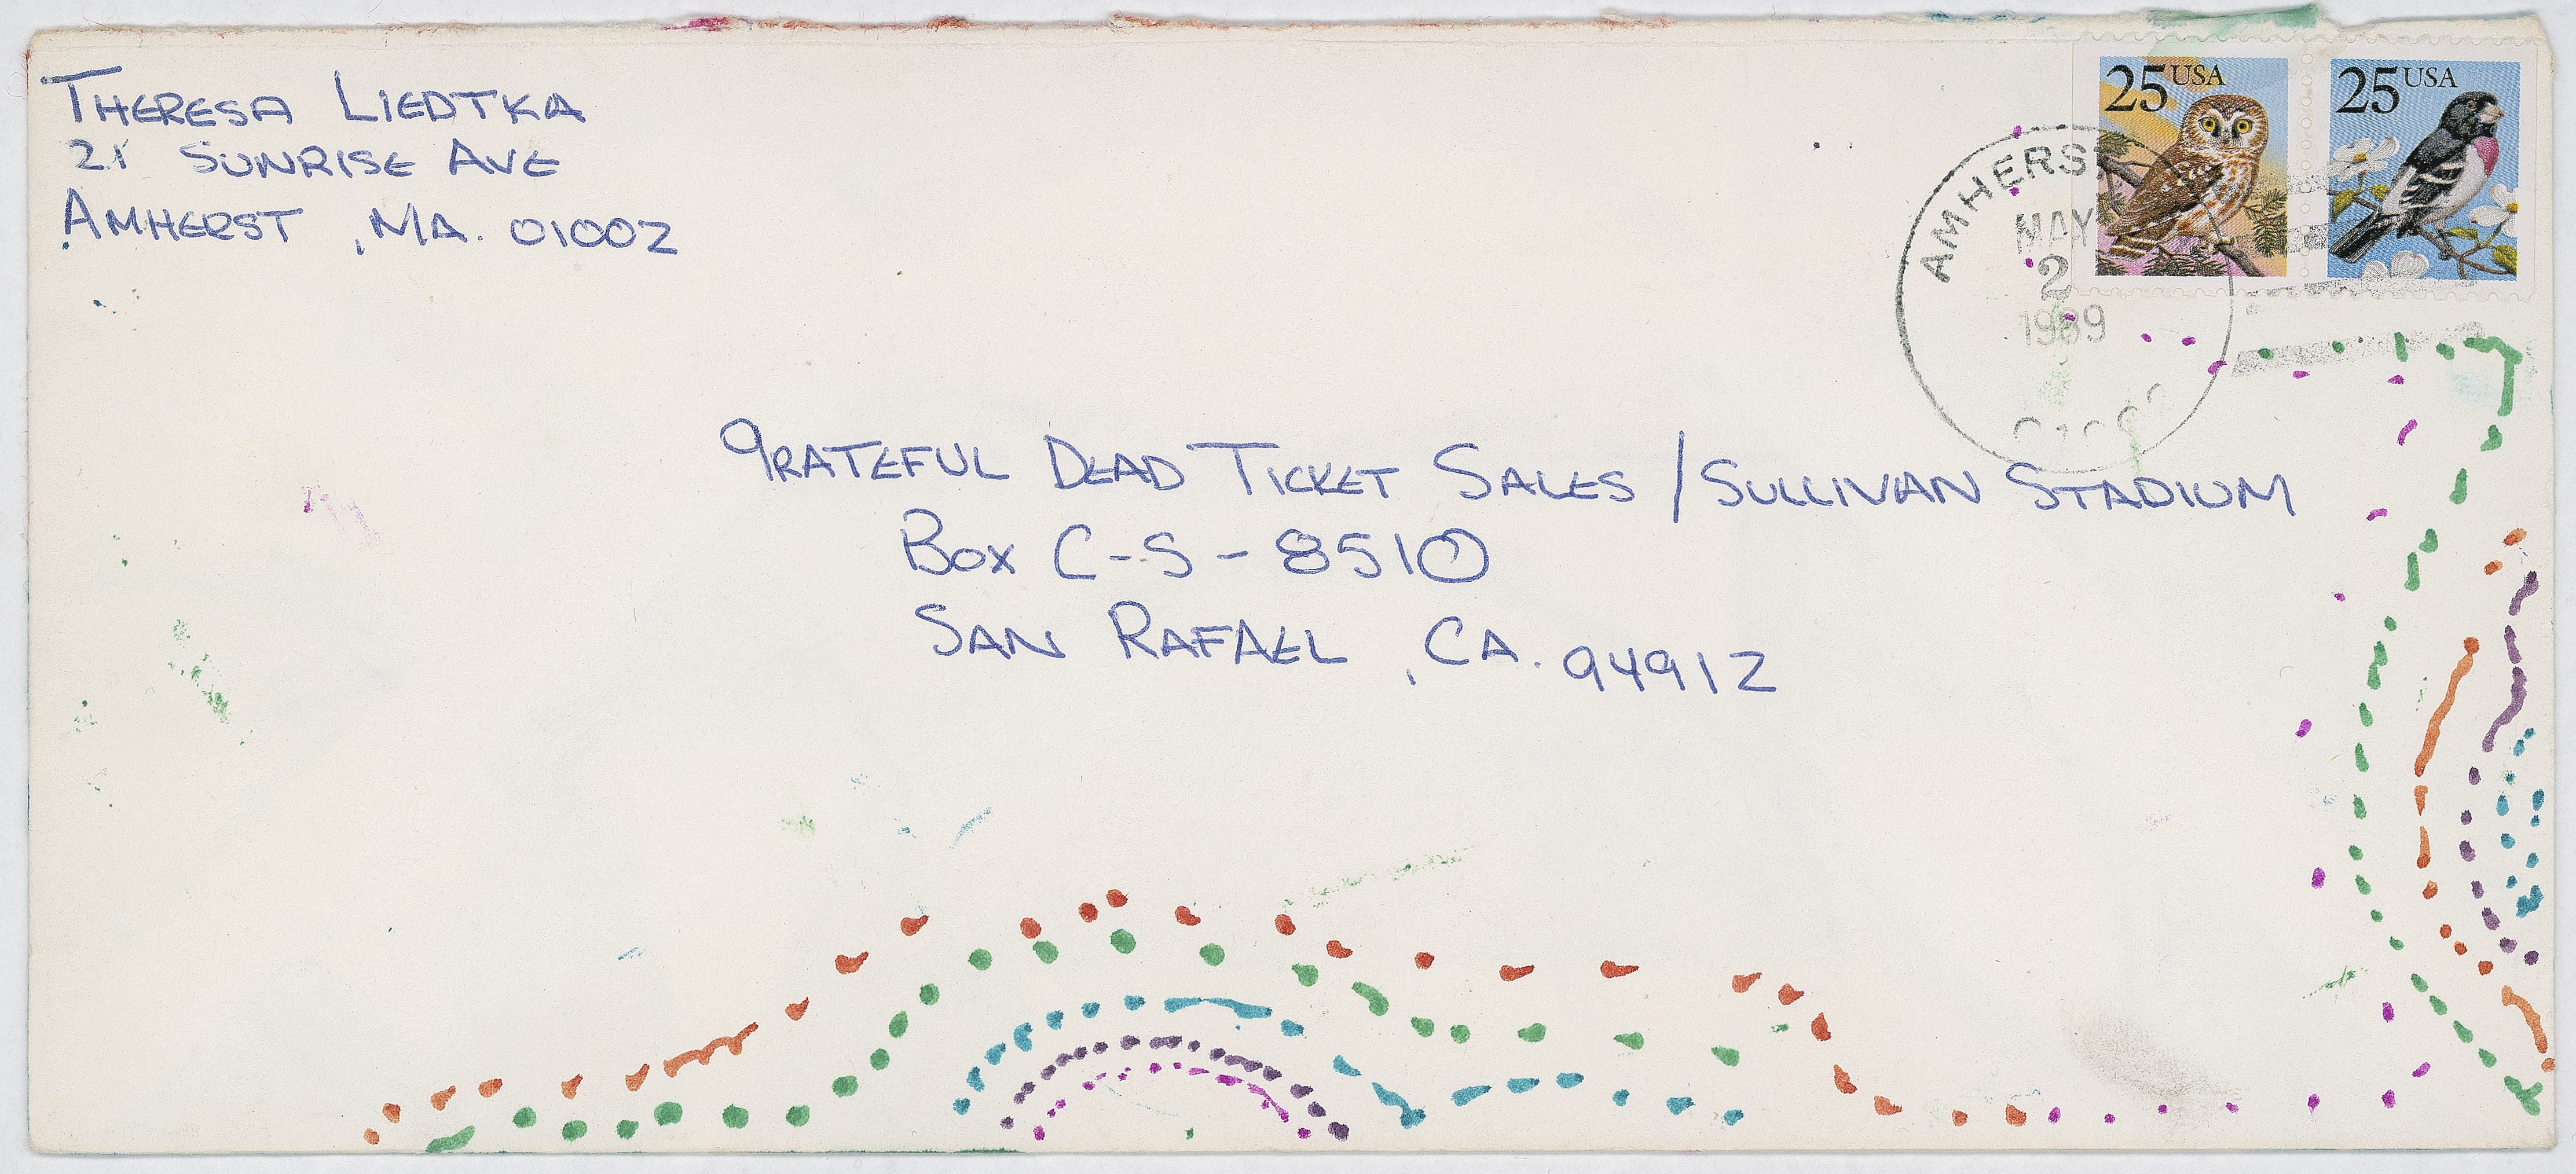 THERESA LIEDTKA
21 SUNRISE AVE
AMHERST, MA. 01002
25 USA
25 USA
AMHERST
MAY
2
1989
GRATEFUL DEAD TICKET SALES / SULLIVAN STADIUM
BOX C-S-8510
SAN RAFAEL, CA. 94912